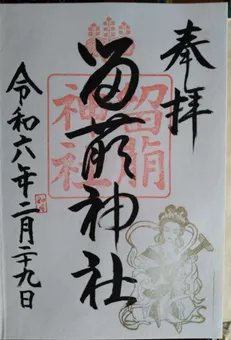 奉拝
留萠神社
留萠神社
令和六年二月二十九日